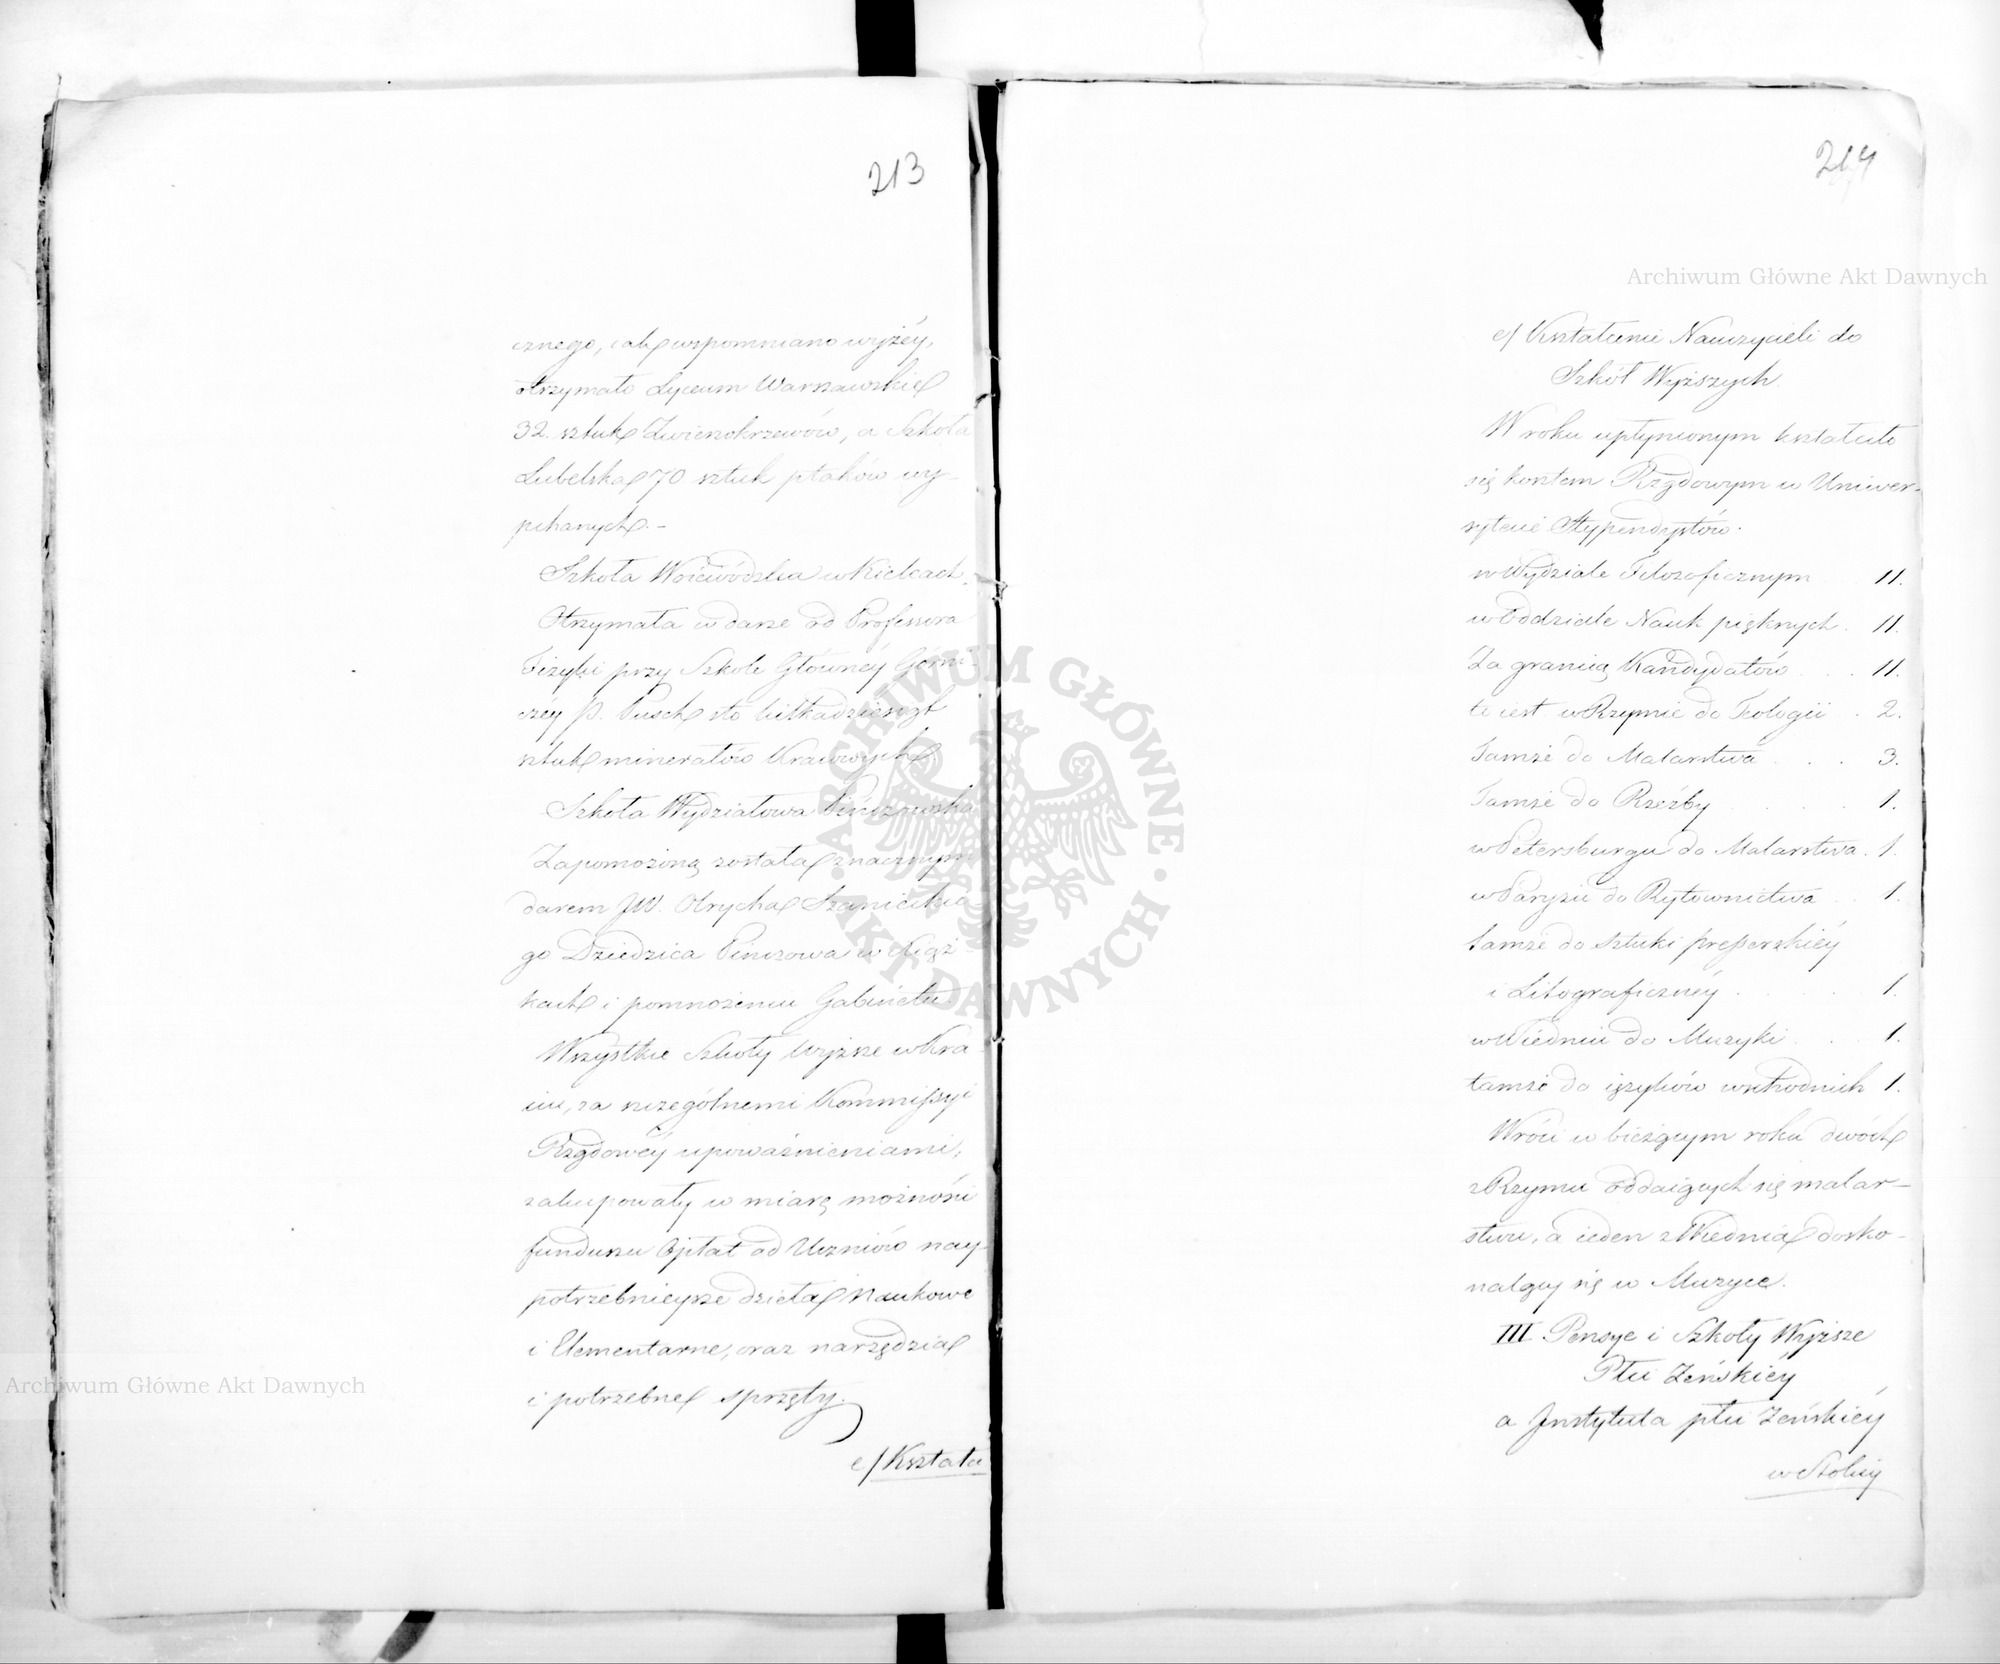 213
cznego, iak wspomniano wyżéy,
otrzymało Lyceum Warszawskie
32. sztuk Zwierzokrzewów, a Szkoła
Lubelska 70 sztuk ptaków wy-
pchanych. -
Szkoła Woiewódzka w Kielcach.
Otrzymała w darze od Professora
Fizyki przy Szkole Głównéy Górni-
czéy P. Pusch sto kilkadziesiąt
sztuk minerałów Kraiowych.
Szkoła Wydziałowa Pińczowska
Zapomożoną została znacznym
darem JW. Olrycha Szanieckie-
go Dziedzica Pińczowa w Xiąż-
kach i pomnożeniu Gabinetu.
Wszystkie Szkoły wyższe w Kra-
iu, za szczególnemi Kommissyi
Rządowéy upoważnieniami,
zakupowały w miarę możności
funduszu Opłat od Uczniów nay-
potrzebnieysze dzieła Naukowe
i Elementarne, oraz narzędzia
i potrzebne sprzęty.
e/ Kształce
214
e/ Kształcenie Nauczycieli do
Szkół Wyższych.
W roku upłynionym kształciło
się kosztem Rządowym w Uniwer-
sytecie Stypendystów.
w Wydziale Filozoficznym . . 11.
w Oddziale Nauk pięknych . 11.
Za granicą Kandydatów . . . 11.
to iest w Rzymie do Teologii . 2.
Tamże do Malarstwa . . . 3.
Tamże do Rzeźby . . . . 1.
w Petersburgu do Malarstwa . 1.
w Paryżu do Rytownictwa . . 1.
tamże do sztuki presserskiéy
i Litograficznéy . . . . 1.
w Wiedniu do Muzyki . . . 1.
tamże do ięzyków wschodnich 1.
Wróci w bieżącym roku dwóch
z Rzymu oddaiących się malar-
stwu, a ieden z Wiednia dosko-
nalący się w Muzyce.
III. Pensye i Szkoły Wyższe
Płci Żeńskiéy
a Instytuta płci Żeńskiéy
w Stolicy
Archiwum Główne Akt Dawnych
Archiwum Główne Akt Dawnych
ARCHIWUM GŁÓWNE · AKT DAWNYCH ·